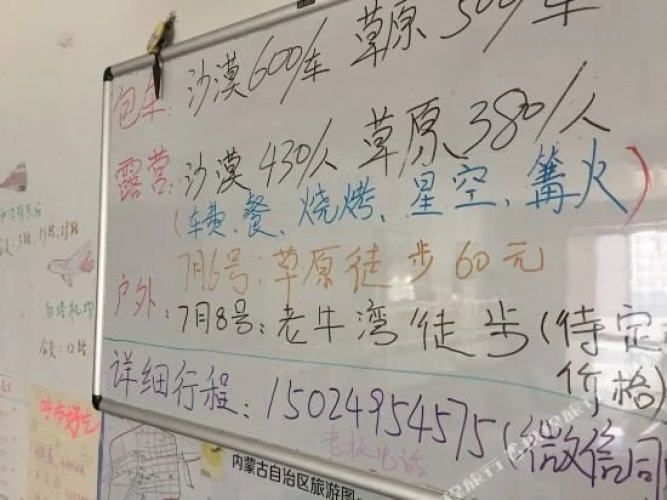 包车: 沙漠600/车 草原500/车
露营: 沙漠430/人 草原380/人
(车费、餐、烧烤、星空、篝火)
户外: 7月6号: 草原徒步60元
7月8号: 老牛湾徒步(待定
价格)
详细行程: 15024954575(微信同
老板电话
内蒙古自治区旅游图
白塔机场